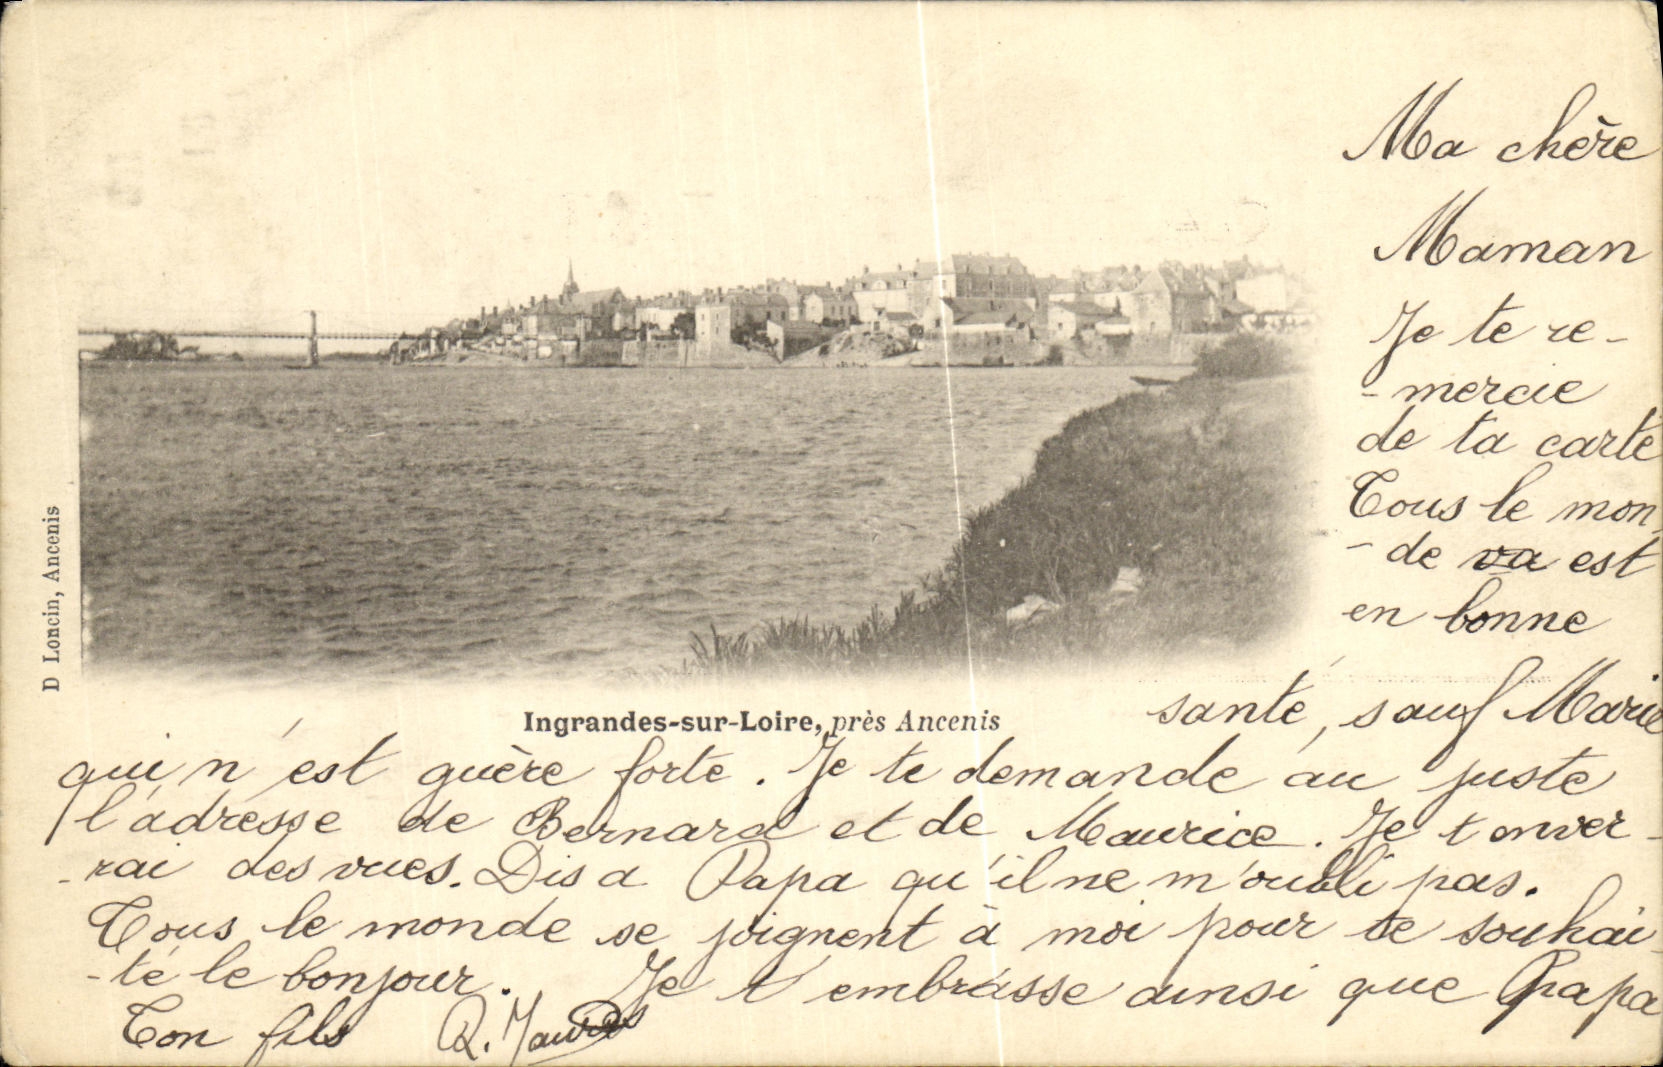 Ma chère
Maman
Je te re-
-mercie
de ta carte
Tous le mon
-de va est
en bonne
D Loncin, Ancenis
Ingrandes-sur-Loire, près Ancenis
santé, sauf Marie
qui n'est guère forte. Je te demande au juste
l'adresse de Bernard et de Maurice. Je t'enver-
-rai des vues. Dis a Papa qu'il ne m'oubli pas.
Tous le monde se joignent à moi pour te souhai-
-té le bonjour. Je t'embrasse ainsi que Papa
Ton fils R.